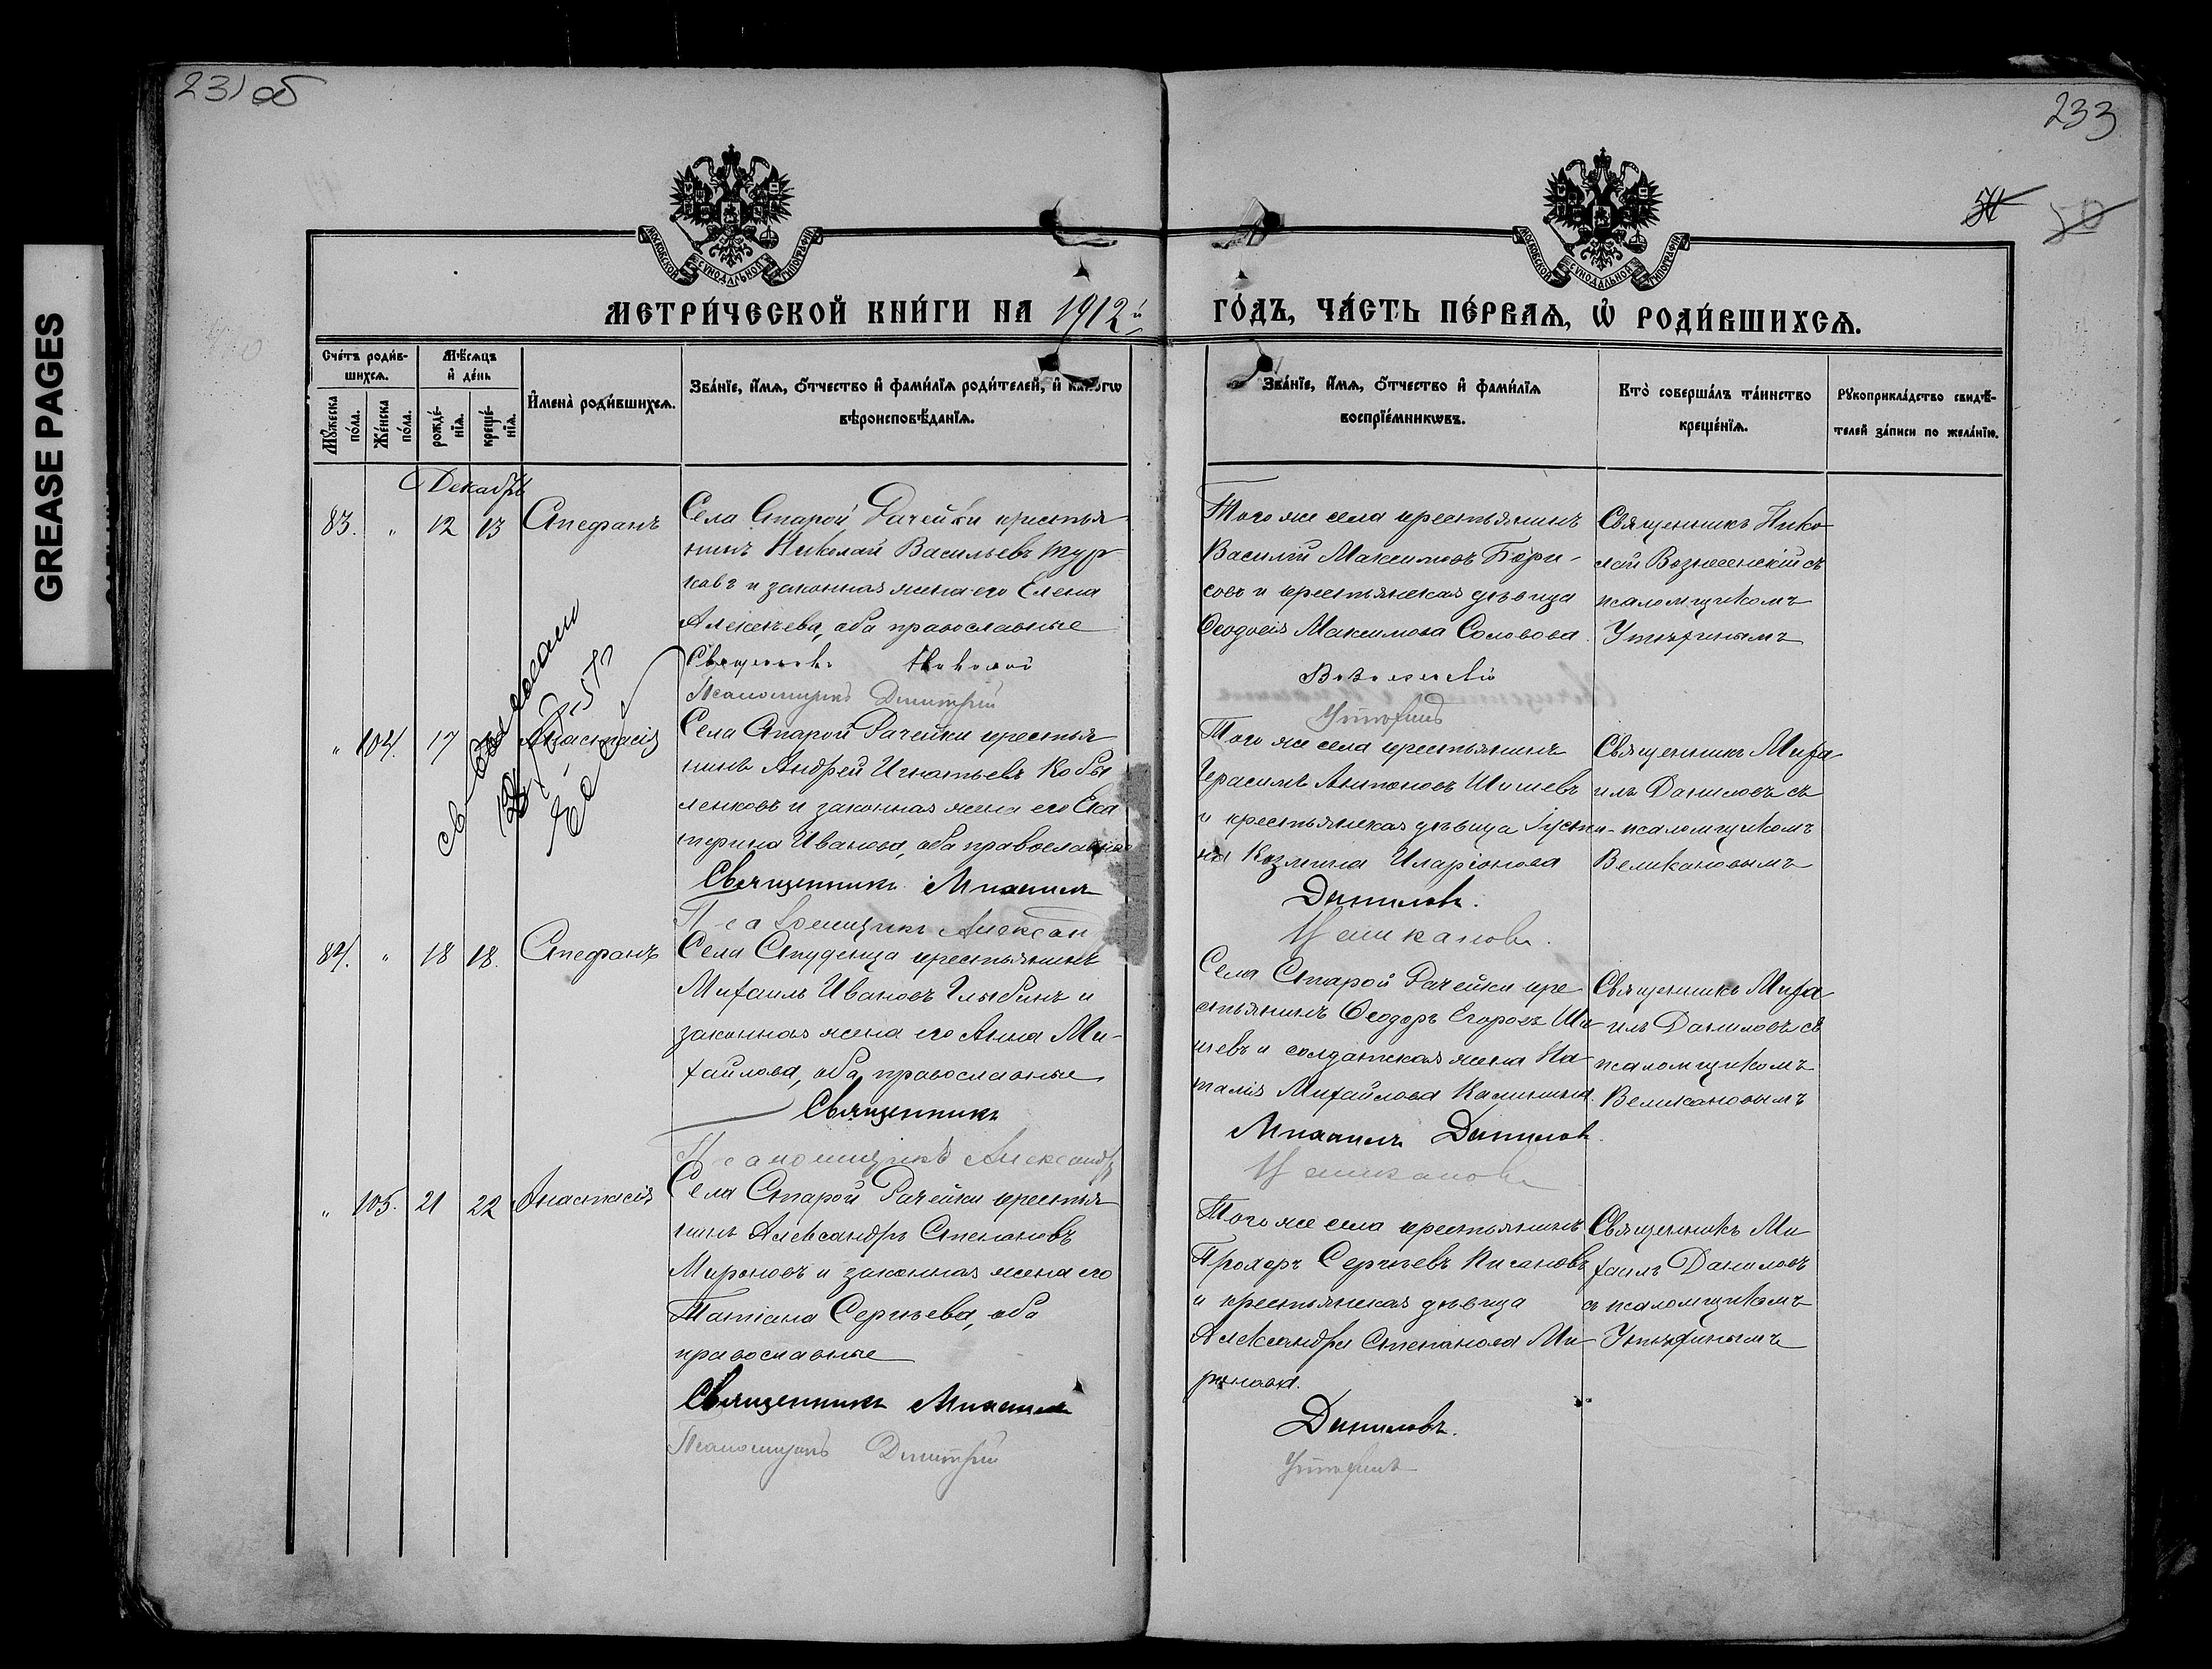 GREASE PAGES
231 об
233
50
МОСКОВСКОЙ СУНОДАЛЬНОЙ ТИПОГРАФІИ
МОСКОВСКОЙ СУНОДАЛЬНОЙ ТИПОГРАФІИ
МЕТРИ́ЧЕСКОЙ КНИ́ГИ НА 1912й
ГО́ДЪ, ЧА́СТЬ ПЕ́РВАѦ, Ѡ҆ РОДИ́ВШИХСѦ.
Сче́тъ роди́в-
шихсѧ.
Мꙋ́жеска
по́ла.
Же́нска
по́ла.
Мѣ́сѧцъ
и҆ де́нь
рожде́-
нїѧ.
креще́-
нїѧ.
И҆мена̀ роди́вшихсѧ.
Зва́нїе, и҆́мѧ, ѻ҆́тчество и҆ фами́лїѧ роди́телей, и҆ како́гѡ
вѣроисповѣ́данїѧ.
Зва́нїе, и҆́мѧ, ѻ҆́тчество и҆ фами́лїѧ
воспрїе́мникѡвъ.
Кто̀ соверша́лъ та́инство
креще́нїѧ.
Рꙋкоприкла́дство свидѣ́-
телей за́писи по жела́нїю.
Декабрь
83. " 12 13 Стефанъ
Села Старой Рачейки крестья
нинъ Николай Васильевъ Тур
ковъ и законная жена его Елена
Алексѣева, оба православные
Священникъ Николай
Псаломщикъ Димитрій
Того же села крестьянинъ
Василій Максимовъ Бори-
совъ и крестьянская дѣвица
Ѳеодосія Максимова Соловова.
Вознесенскій
Утѣхинъ
Священникъ Нико
лай Вознесенскій съ
псаломщикомъ
Утѣхинымъ
" 104. 17 Анастасія
Села Старой Рачейки крестья
нинъ Андрей Игнатьевъ Кобы
ленковъ и законная жена его Ека
терина Иванова, оба православные
Священникъ Михаилъ
Псаломщикъ Александ
Того же села крестьянинъ
Герасимъ Антоновъ Шишевъ
и крестьянская дѣвица Іусти-
на Козмина Иларіонова
Даниловъ.
Великановъ.
Священникъ Миха
илъ Даниловъ съ
псаломщикомъ
Великановымъ
84. " 18 18. Стефанъ
Села Студенца крестьянинъ
Михаилъ Ивановъ Глыбинъ и
законная жена его Анна Ми-
хайлова, оба православные
Священникъ
Псаломщикъ Александръ
Села Старой Рачейки кре
стьянинъ Ѳеодоръ Егоровъ Ши
шевъ и солдатская жена На
талія Михайлова Калинина.
Михаилъ Даниловъ.
Великановъ
Священникъ Миха
илъ Даниловъ съ
псаломщикомъ
Великановымъ
" 105. 21 22 Анастасія
Села Старой Рачейки крестья
нинъ Александръ Степановъ
Мироновъ и законная жена его
Татіана Сергѣева, оба
православные
Священникъ Михаилъ
Псаломщикъ Димитрій
Того же села крестьянинъ
Прохоръ Сергѣевъ Писановъ
и крестьянская дѣвица
Александра Степанова Ми-
ронова.
Даниловъ.
Утѣхинъ
Священникъ Ми
хаилъ Даниловъ
съ псаломщикомъ
Утѣхинымъ